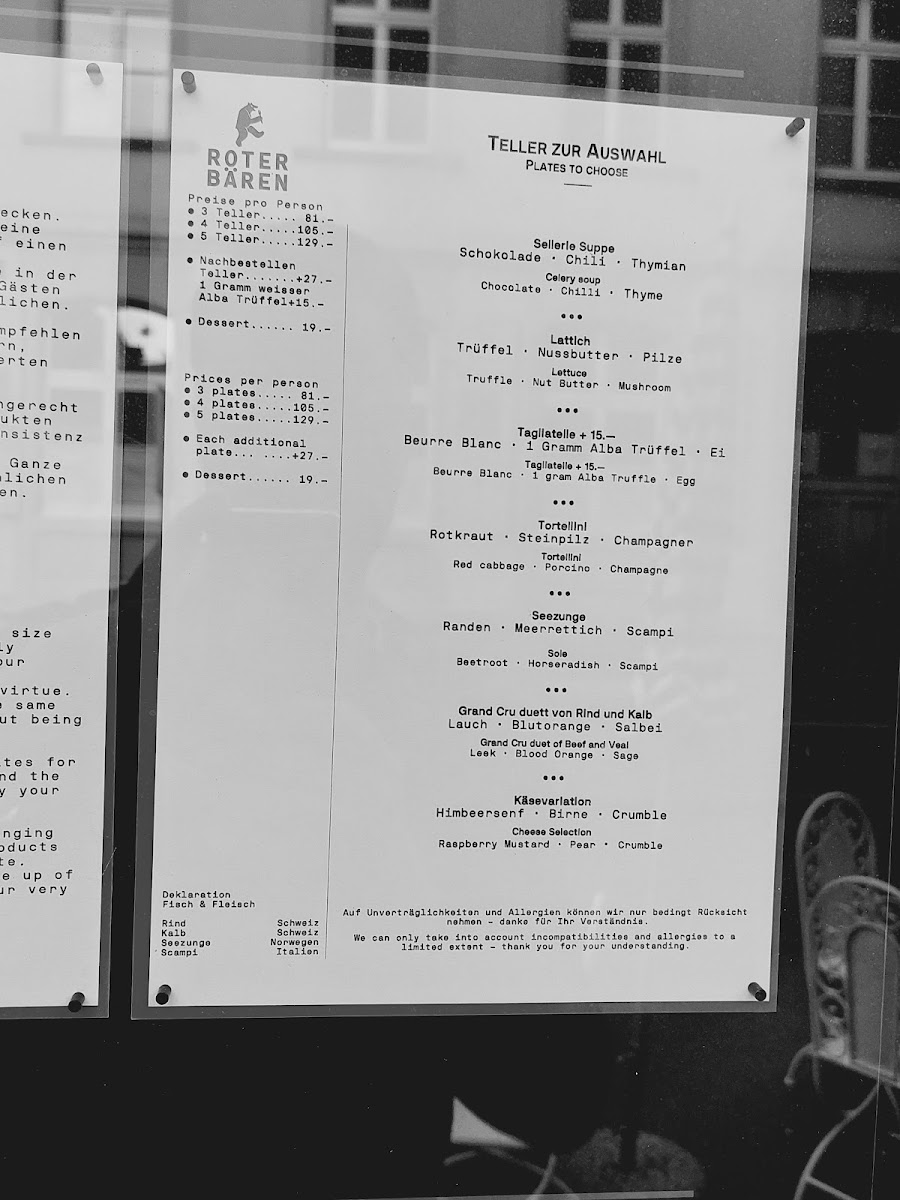 ecken.
eine
f einen
in der
Gästen
lichen.
mpfehlen
rn,
erten
ngerecht
ukten
nsistenz
Ganze
nlichen
en.
size
ly
our
virtue.
e same
ut being
tes for
nd the
y your
nging
oducts
te.
e up of
ur very
ROTER
BÄREN
Preise pro Person
• 3 Teller..... 81.-
• 4 Teller.....105.-
• 5 Teller.....129.-
• Nachbestellen
Teller.......+27.-
1 Gramm weisser
Alba Trüffel+15.-
• Dessert...... 19.-
Prices per person
• 3 plates..... 81.-
• 4 plates.....105.-
• 5 plates.....129.-
• Each additional
plate... ....+27.-
• Dessert...... 19.-
Deklaration
Fisch & Fleisch
Rind Schweiz
Kalb Schweiz
Seezunge Norwegen
Scampi Italien
TELLER ZUR AUSWAHL
PLATES TO CHOOSE
Sellerie Suppe
Schokolade · Chili · Thymian
Celery soup
Chocolate · Chilli · Thyme
•••
Lattich
Trüffel · Nussbutter · Pilze
Lettuce
Truffle · Nut Butter · Mushroom
•••
Tagliatelle + 15.—
Beurre Blanc · 1 Gramm Alba Trüffel · Ei
Tagliatelle + 15.—
Beurre Blanc · 1 gram Alba Truffle · Egg
•••
Tortellini
Rotkraut · Steinpilz · Champagner
Tortellini
Red cabbage · Porcino · Champagne
•••
Seezunge
Randen · Meerrettich · Scampi
Sole
Beetroot · Horseradish · Scampi
•••
Grand Cru duett von Rind und Kalb
Lauch · Blutorange · Salbei
Grand Cru duet of Beef and Veal
Leek · Blood Orange · Sage
•••
Käsevariation
Himbeersenf · Birne · Crumble
Cheese Selection
Raspberry Mustard · Pear · Crumble
Auf Unverträglichkeiten und Allergien können wir nur bedingt Rücksicht
nehmen – danke für Ihr Verständnis.
We can only take into account incompatibilities and allergies to a
limited extent – thank you for your understanding.